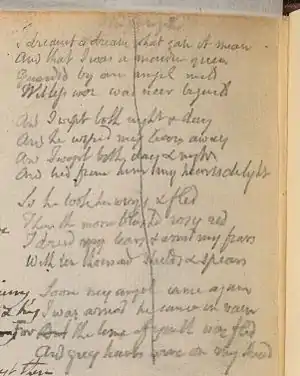 The Angel
I dreamt a dream what can it mean
And that I was a maiden queen
Guarded by an angel mild
Witless woe was neer beguild
And I wept both night & day
And he wiped my tears away
And I wept both day & night
And hid from him my hearts delight
So he took his wings & fled
Then the morn blushd rosy red
I dried my tears & armd my fears
With ten thousand shields & spears
Soon my angel came again
I was armd he came in vain
For the time of youth was fled
And grey hairs were on my head